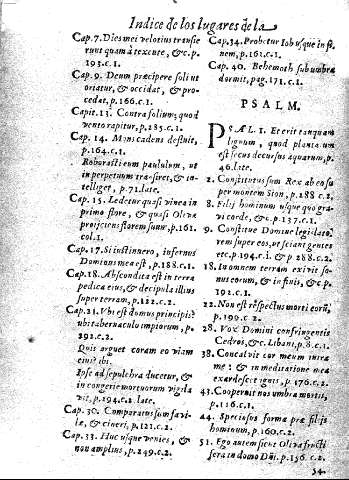 Indice de los lugares de la
Cap. 7. Dies mei velotius transie
runt quam à texente, &c. p.
193. c. 1.
Cap. 9. Deum præcipere soli ut
oriatur, & occidat, & pro-
cedat, p. 166. c. 1.
Capit. 13. Contra folium, quod
vento rapitur, p. 285. c. 1.
Cap. 14. Mons cadens desluit,
p. 164. c. 1.
Roborasti eum paululum, ut
in perpetuum trāsiret, & in-
telliget, p. 71. late.
Cap. 15. Ledetur quasi vinea in
primo flore, & quasi Oliva
proijciens florem suum, p. 161.
col. 1.
Cap. 17. Si sustinuero, infernus
Domus mea est, p. 188. c. 1.
Cap. 18. Abscondita est in terra
pedica eius, & decipula illius
super terram, p. 122. c. 2.
Cap. 21. Vbi est domus principis?
ubi tabernaculo impiorum, p.
292. c. 2.
Quis arguet coram eo viam
eius? ibi.
Ipse ad sepulchra ducetur, &
in congerie mortuorum vigila
vit, p. 294. c. 2. late.
Cap. 30. Comparatus som favi-
læ, & cineri, p. 121. c. 2.
Cap. 33. Huc usque venies, &
non amplius, p. 249. c. 2.
Cap. 34. Probetur Iob usque in fi-
nem, p. 161. c. 1.
Cap. 40. Behemoth sub umbra
dormit, pag. 171. c. 1.
PSALM.
PSAL. 1. Et erit tanquam
lignum, quod planta um
est secus decursus aquarum, p.
46. late.
2. Constitutus sum Rex ab eo su
per montem Sion, p. 288 c. 2.
8. Filij hominum usque quo gra-
vi corde, &c. p. 137. c. 1.
9. Constitue Domine legislato
rem super eos, ut sciant gentes
etc. p. 194. c. 1. & p. 288. c. 2.
18. In omnem terram exivit so-
nus eorum, & in finis, & c. p.
192. c. 1.
22. Non est respectus morti eorū,
p. 199. c. 2.
28. Vox Domini confringentis
Cedros, & c. Libani, p. 8. c. 1.
38. Concalvit cor meum intra
me: & in meditatione mea
exardescet ignis, p. 176. c. 2.
43. Cooperuit nos umbra mortis,
p. 116. c. 1.
44. Speciosus forma præ filijs
hominum, p. 160. c. 2.
51. Ego autem sicut Oliva fructi
fera in domo Dñi. p. 156. c. 2.
54.